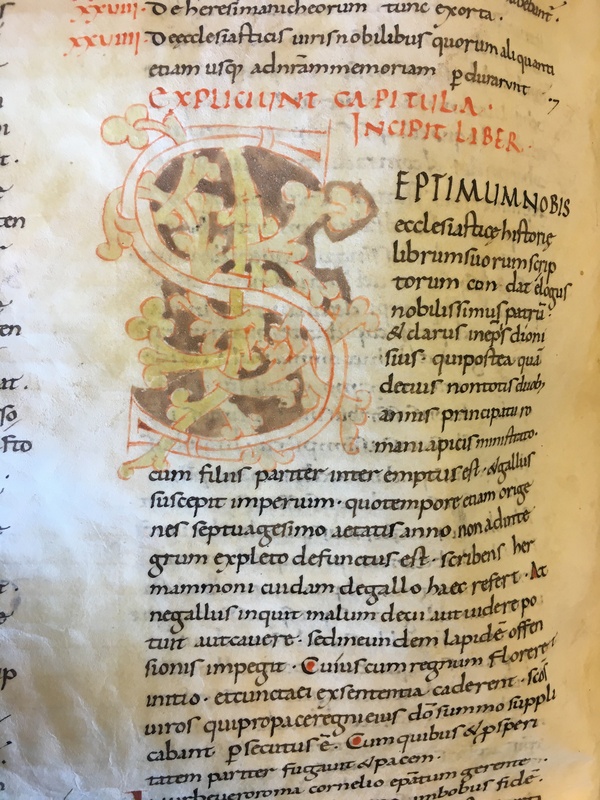 xxviii· De heresi manicheorum tunc exorta ·
xxviiii· De ecclesiasticis uiris nobilibus quorum aliquanti
etiam usq; ad nram memoriam pdurarunt
EXPLICIUNT CAPITULA ·
INCIPIT LIBER ·
SEPTIMUM NOBIS
ecclesiastice historie
librum suorum scrip
torum con dat elogus
nobilissimus patru
& clarus ineps dioni
sius · qui postea qua
detius non totis duob;
annis principatu ro
mani apicis ministrato ·
cum filiis pariter inter emptus est · & gallus
suscepit imperium · quo tempore etiam orige
nes septuagesimo aetatis anno, non ad inte
grum expleto defunctus est · scribens her
mammoni cuidam de gallo haec refert · At
ne gallus inquit malum decii aut uidere po
tuit aut cauere · sed in eundem lapide offen
sionis impegit · Cuius cum regnum florere
initio · et cuncta ei ex sententia caderent · scos
uiros qui pro pace regni eius do summo suppli
cabant psecutus e · Cum quibus & psperi
tatem pariter fugauit & pacem ·
roma cornelio epatum gerente ·
fide ·